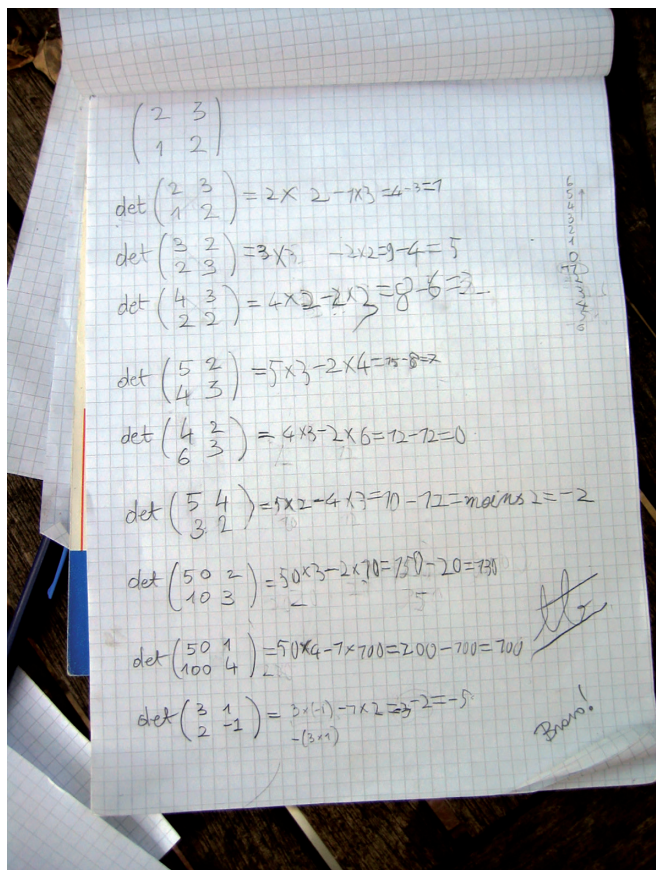 ( 2 3
1 2 )
det ( 2 3
1 2 ) = 2 × 2 - 1×3 = 4-3 = 1
det ( 3 2
2 3 ) = 3×3 - 2×2 = 9-4 = 5
det ( 4 3
2 2 ) = 4×2-2×3 = 8-6 =
det ( 5 2
4 3 ) = 5×3-2×4 = 15-8=7
det ( 4 2
6 3 ) = 4×3-2×6 = 12-12 = 0
det ( 5 4
3 2 ) = 5×2-4×3 = 10-12 = moins 2 = -2
det ( 50 2
10 3 ) = 50×3-2×10 = 150-20 = 130
det ( 50 1
100 4 ) = 50×4-1×100 = 200-100 = 100
det ( 3 1
2 -1 ) = 3×(-1)-1×2 = -3-2 = -5
-(3×1)
6
5
4
3
2
1
0
Bravo!